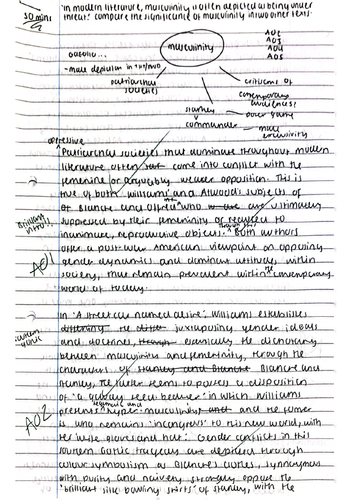 30 mins
"In modern literature, masculinity is often depicted as being under
threat." Compare the significance of masculinity in two other texts.
AO2
AO3
AO4
AO5
masculinity
outline...
- male depiction in
patriarchal
societies
criticisms of
contemporary
audiences?
stanley
commander
poker party
male
exclusivity
oppressive
Patriarchal societies that dominate throughout modern
literature often come into conflict with the
feminine or arguably weaker opposition. This is
true of both Williams' and Atwood's subjects of
of Blanche and Offred who are ultimately
suppressed by their femininity or reduced to
inanimate, reproductive objects. Both authors
offer a post-war American viewpoint on opposing
gender dynamics and dominant attitudes within
society, that remain prevalent within the contemporary
world of today.
Brilliant
intro!
AO1
In 'A Streetcar named desire', Williams establishes
the juxtaposing gender ideals
and doctrines, essentially the dichotomy
between masculinity and femininity, through the
characters of Stanley and Blanche Blanche and
Stanley, the latter seems to possess a disposition
of 'a gaudy seed bearer' in which Williams
presents hyper-masculinity and the former
is, who remains 'incongruous' to this new world, with
her 'white gloves and hat'. Gender conflicts in this
southern gothic tragedy are depicted through
colour symbolism as Blanche's clothes, synonymous
with purity and naivety strongly oppose the
'brilliant silk bowling shirts' of Stanley, with the
AO2